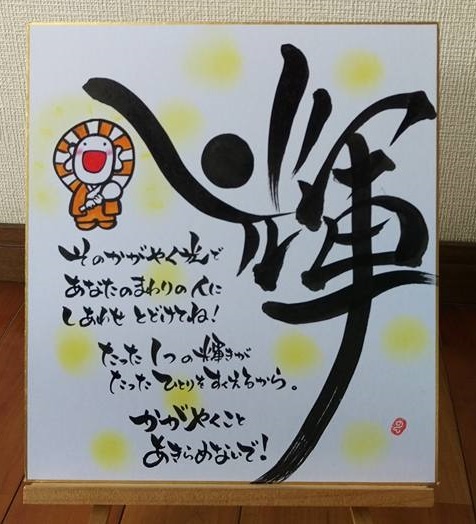 輝
そのかがやく光で
あなたのまわりの人に
しあわせ とどけてね!
たった1つの輝きが
たったひとりをすくえるから。
かがやくこと
あきらめないで!